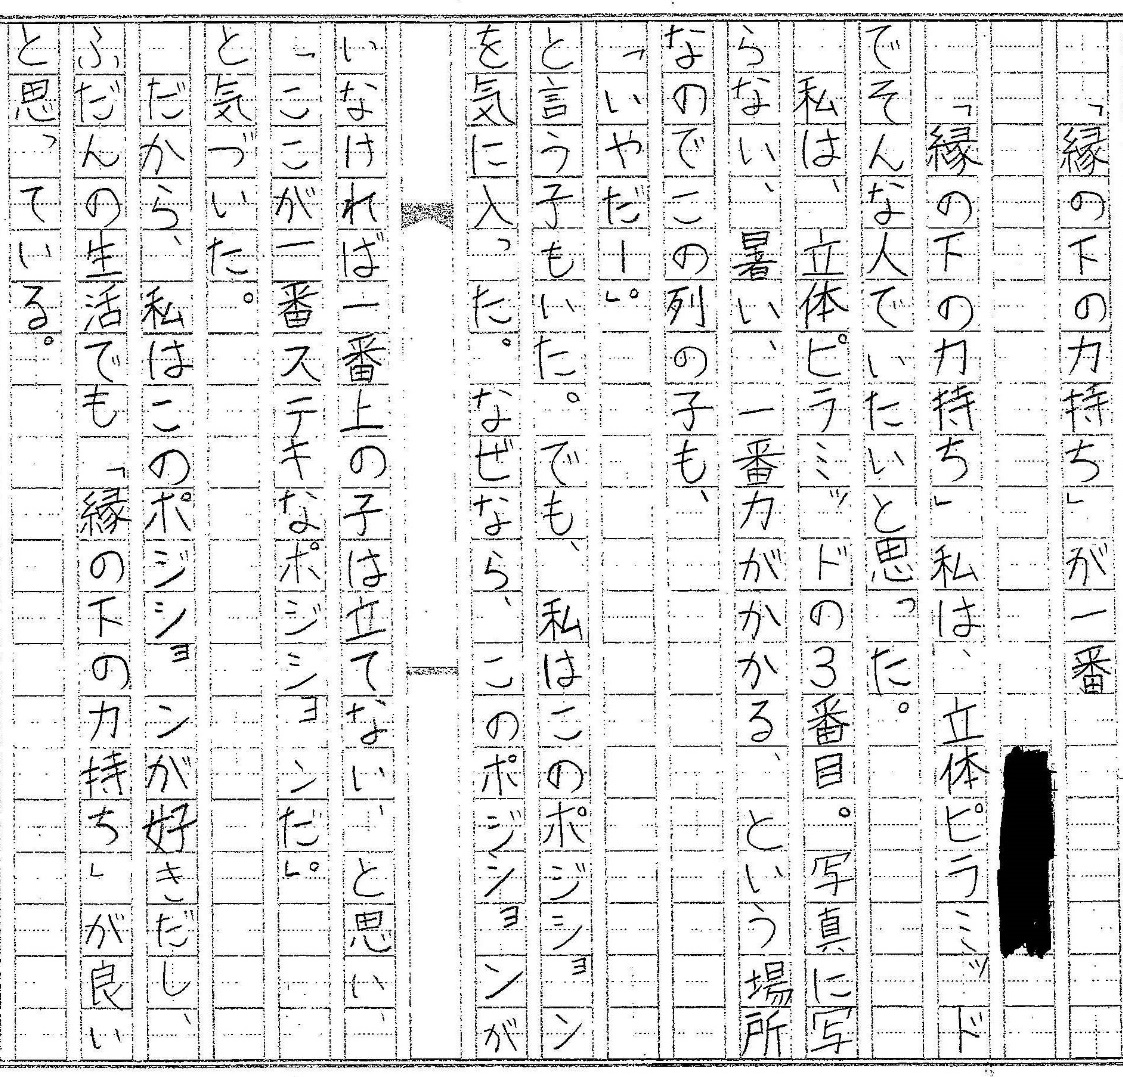 「縁の下の力持ち」が一番
「縁の下の力持ち」私は、立体ピラミッド
でそんな人でいたいと思った。
私は、立体ピラミッドの3番目。写真に写
らない、暑い、一番力がかかる、という場所
なのでこの列の子も、
「いやだー」。
と言う子もいた。でも、私はこのポジション
を気に入った。なぜなら、このポジションが
いなければ一番上の子は立てない、と思い、
「ここが一番ステキなポジションだ」。
と気づいた。
だから、私はこのポジションが好きだし、
ふだんの生活でも「縁の下の力持ち」が良い
と思っている。